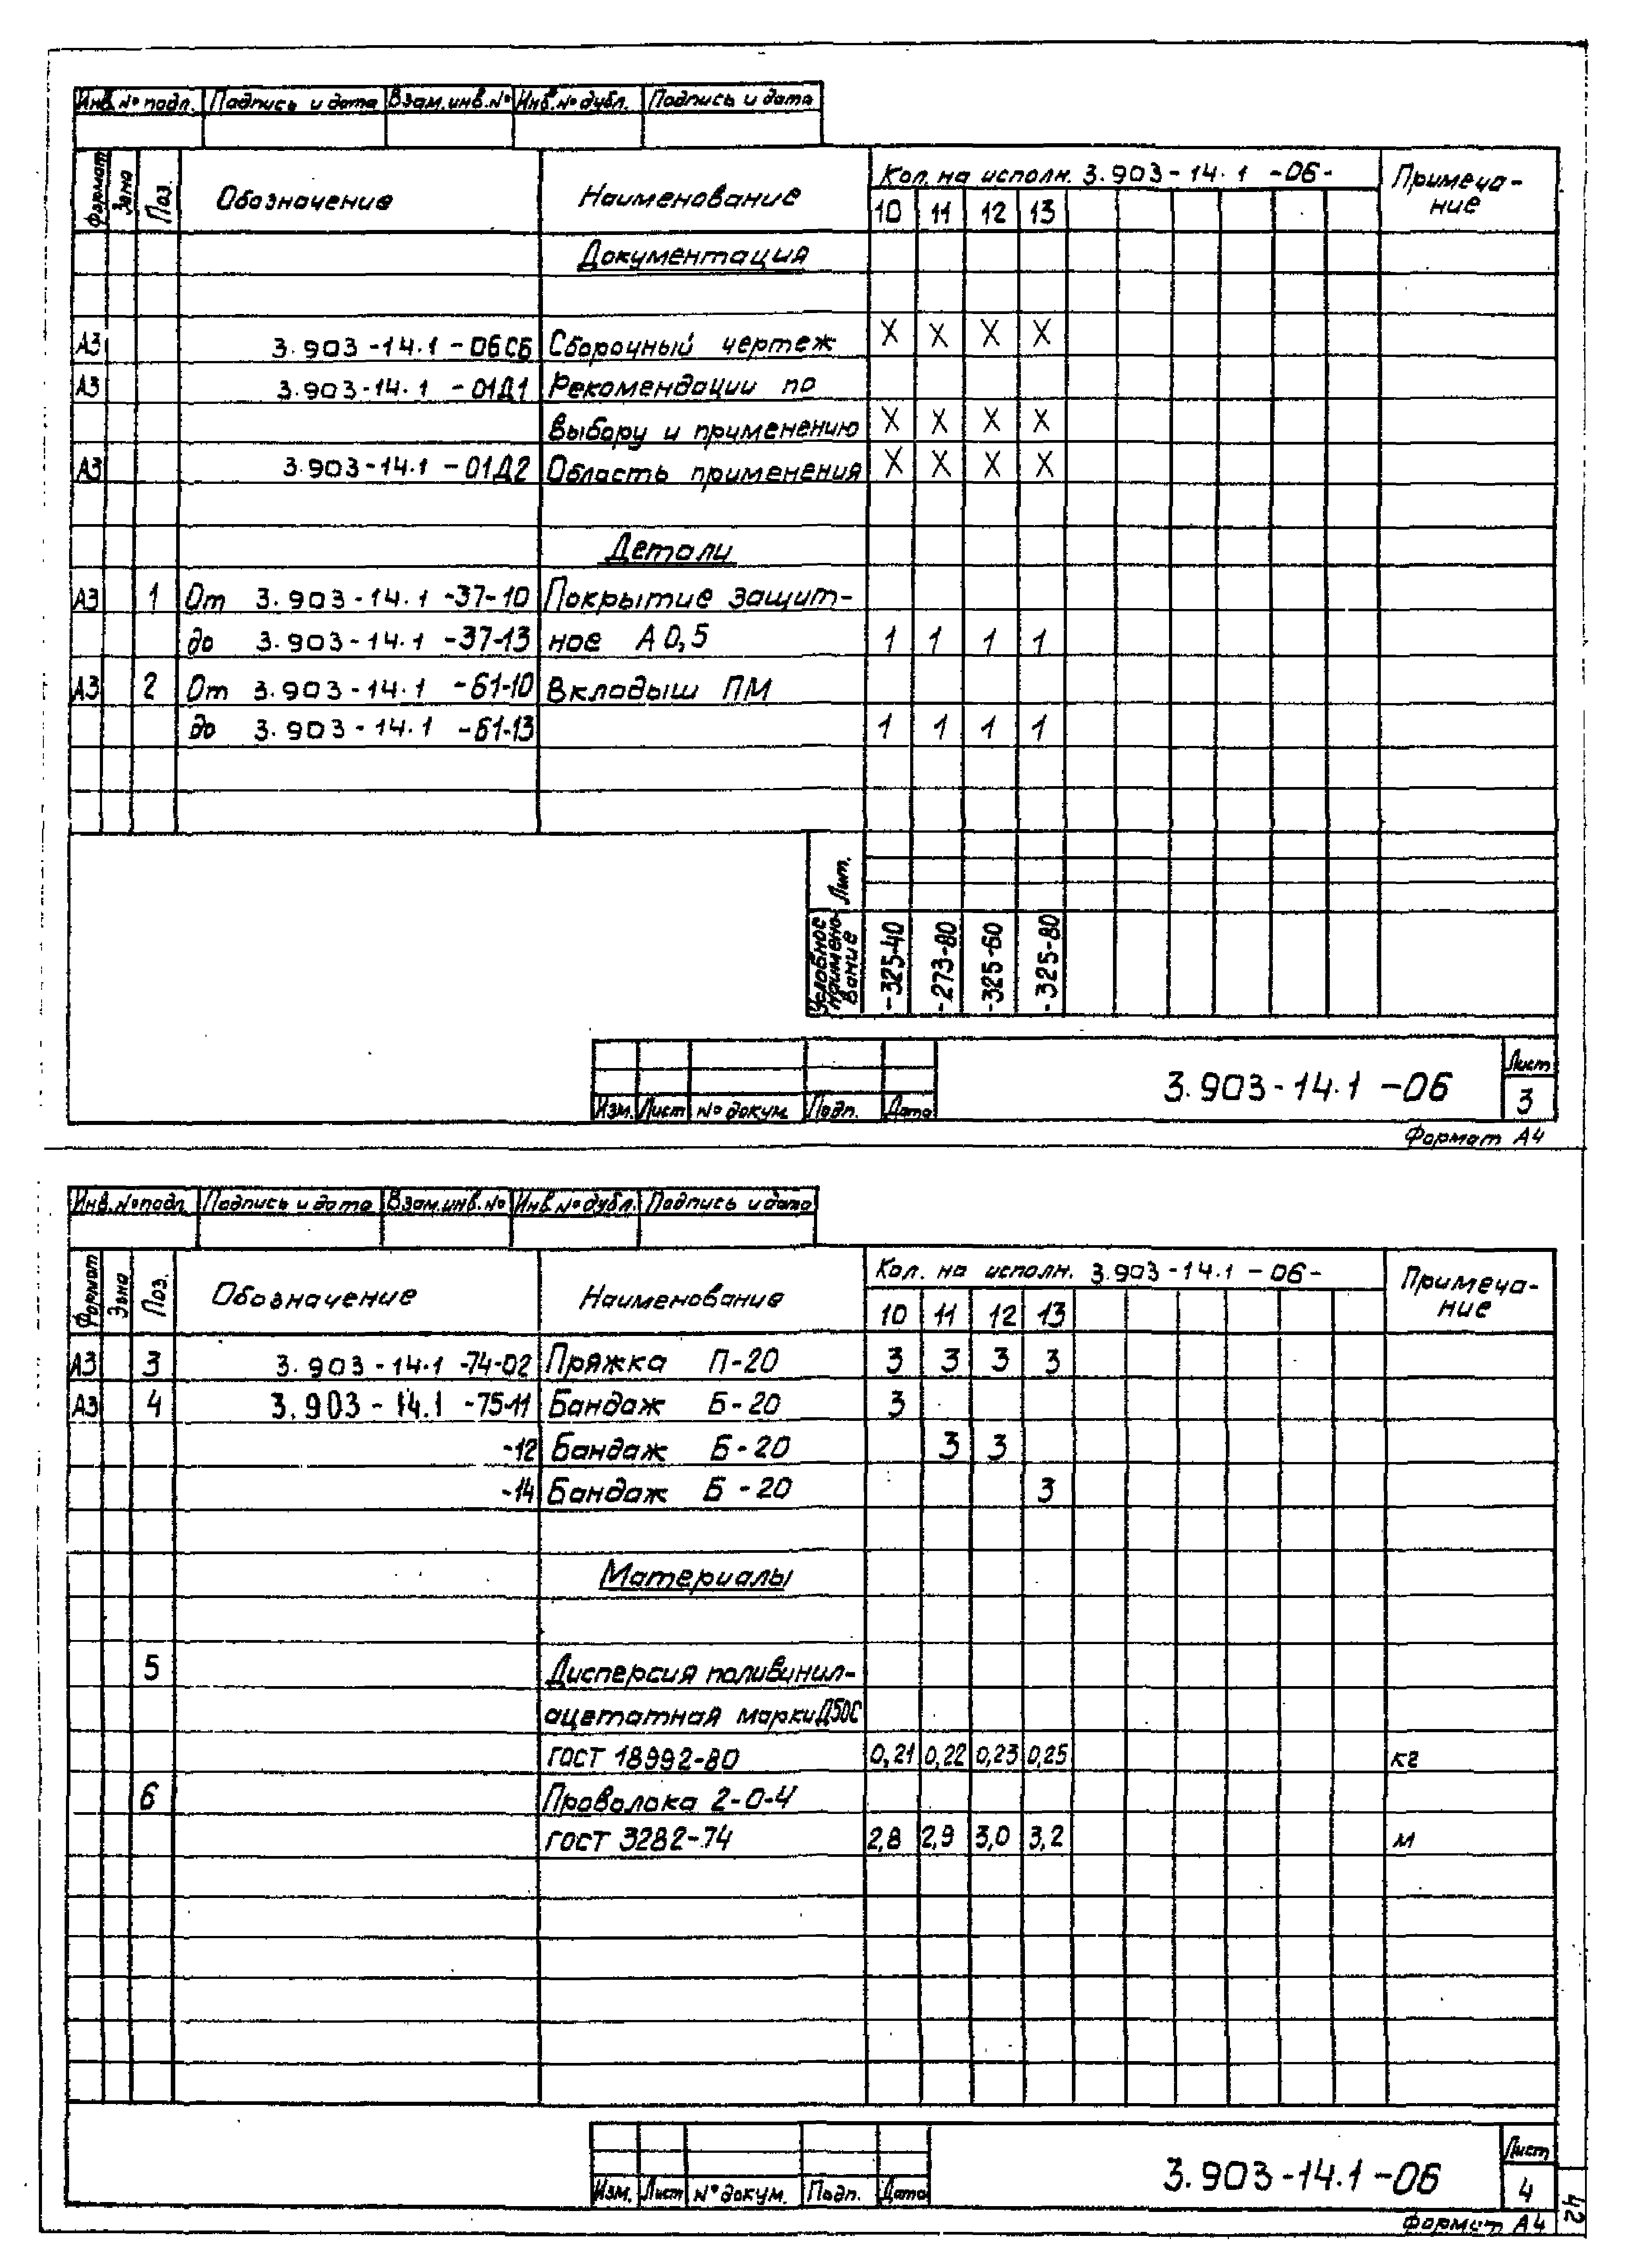 Инв. № подл. Подпись и дата Взам. инв. № Инв. № дубл. Подпись и дата
Формат Зона Поз. Обозначение Наименование Кол. на исполн. 3.903-14.1 -06- Примеча-
ние
10 11 12 13
Документация
А3 3.903-14.1-06СБ Сборочный чертеж X X X X
А3 3.903-14.1-01Д1 Рекомендации по
выбору и применению X X X X
А3 3.903-14.1-01Д2 Область применения X X X X
Детали
А3 1 От 3.903-14.1-37-10 Покрытие защит-
до 3.903-14.1-37-13 ное А 0,5 1 1 1 1
А3 2 От 3.903-14.1-61-10 Вкладыш ПМ
до 3.903-14.1-61-13 1 1 1 1
Лит.
Условное
наимено-
вание
-325-40 -273-80 -325-60 -325-80
Изм. Лист № докум. Подп. Дата
3.903-14.1-06
Лист
3
Формат А4
Инв. № подл. Подпись и дата Взам. инв. № Инв. № дубл. Подпись и дата
Формат Зона Поз. Обозначение Наименование Кол. на исполн. 3.903-14.1-06- Примеча-
ние
10 11 12 13
А3 3 3.903-14.1-74-02 Пряжка П-20 3 3 3 3
А3 4 3.903-14.1-75-11 Бандаж Б-20 3
-12 Бандаж Б-20 3 3
-14 Бандаж Б-20 3
Материалы
5 Дисперсия поливинил-
ацетатная марки Д50С
ГОСТ 18992-80 0,21 0,22 0,23 0,25 кг
6 Проволока 2-О-Ч
ГОСТ 3282-74 2,8 2,9 3,0 3,2 м
Изм. Лист № докум. Подп. Дата
3.903-14.1-06
Лист
4
Формат А4
42